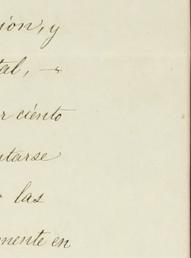 ion, y
tal, →
r ciénto
tarse
las
nente en